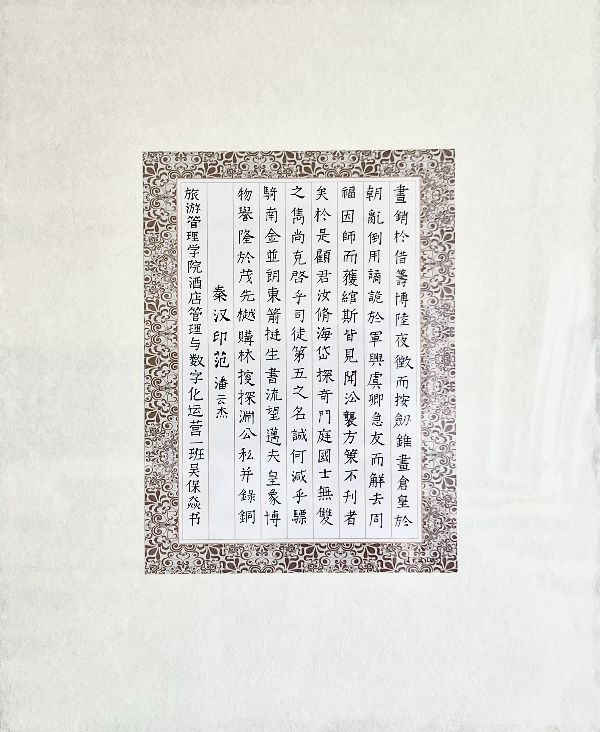 晝銷於借籌博陸夜徵而按劒錐畫倉皇於
朝亂倒用譎詭於軍興虞卿急友而解去同
福因師而獲綰斯皆見聞沿襲方策不刊者
矣於是顧君汝脩海岱探奇門庭國士無雙
之雋尚克啓乎司徒第五之名誠何減乎驃
騎南金並朗東箭挺生書流望邁夫皇象博
物譽隆於茂先樾購林搜探淵公私并錄銅
秦汉印范 潘云杰
旅游管理学院酒店管理与数字化运营二班吴保焱书